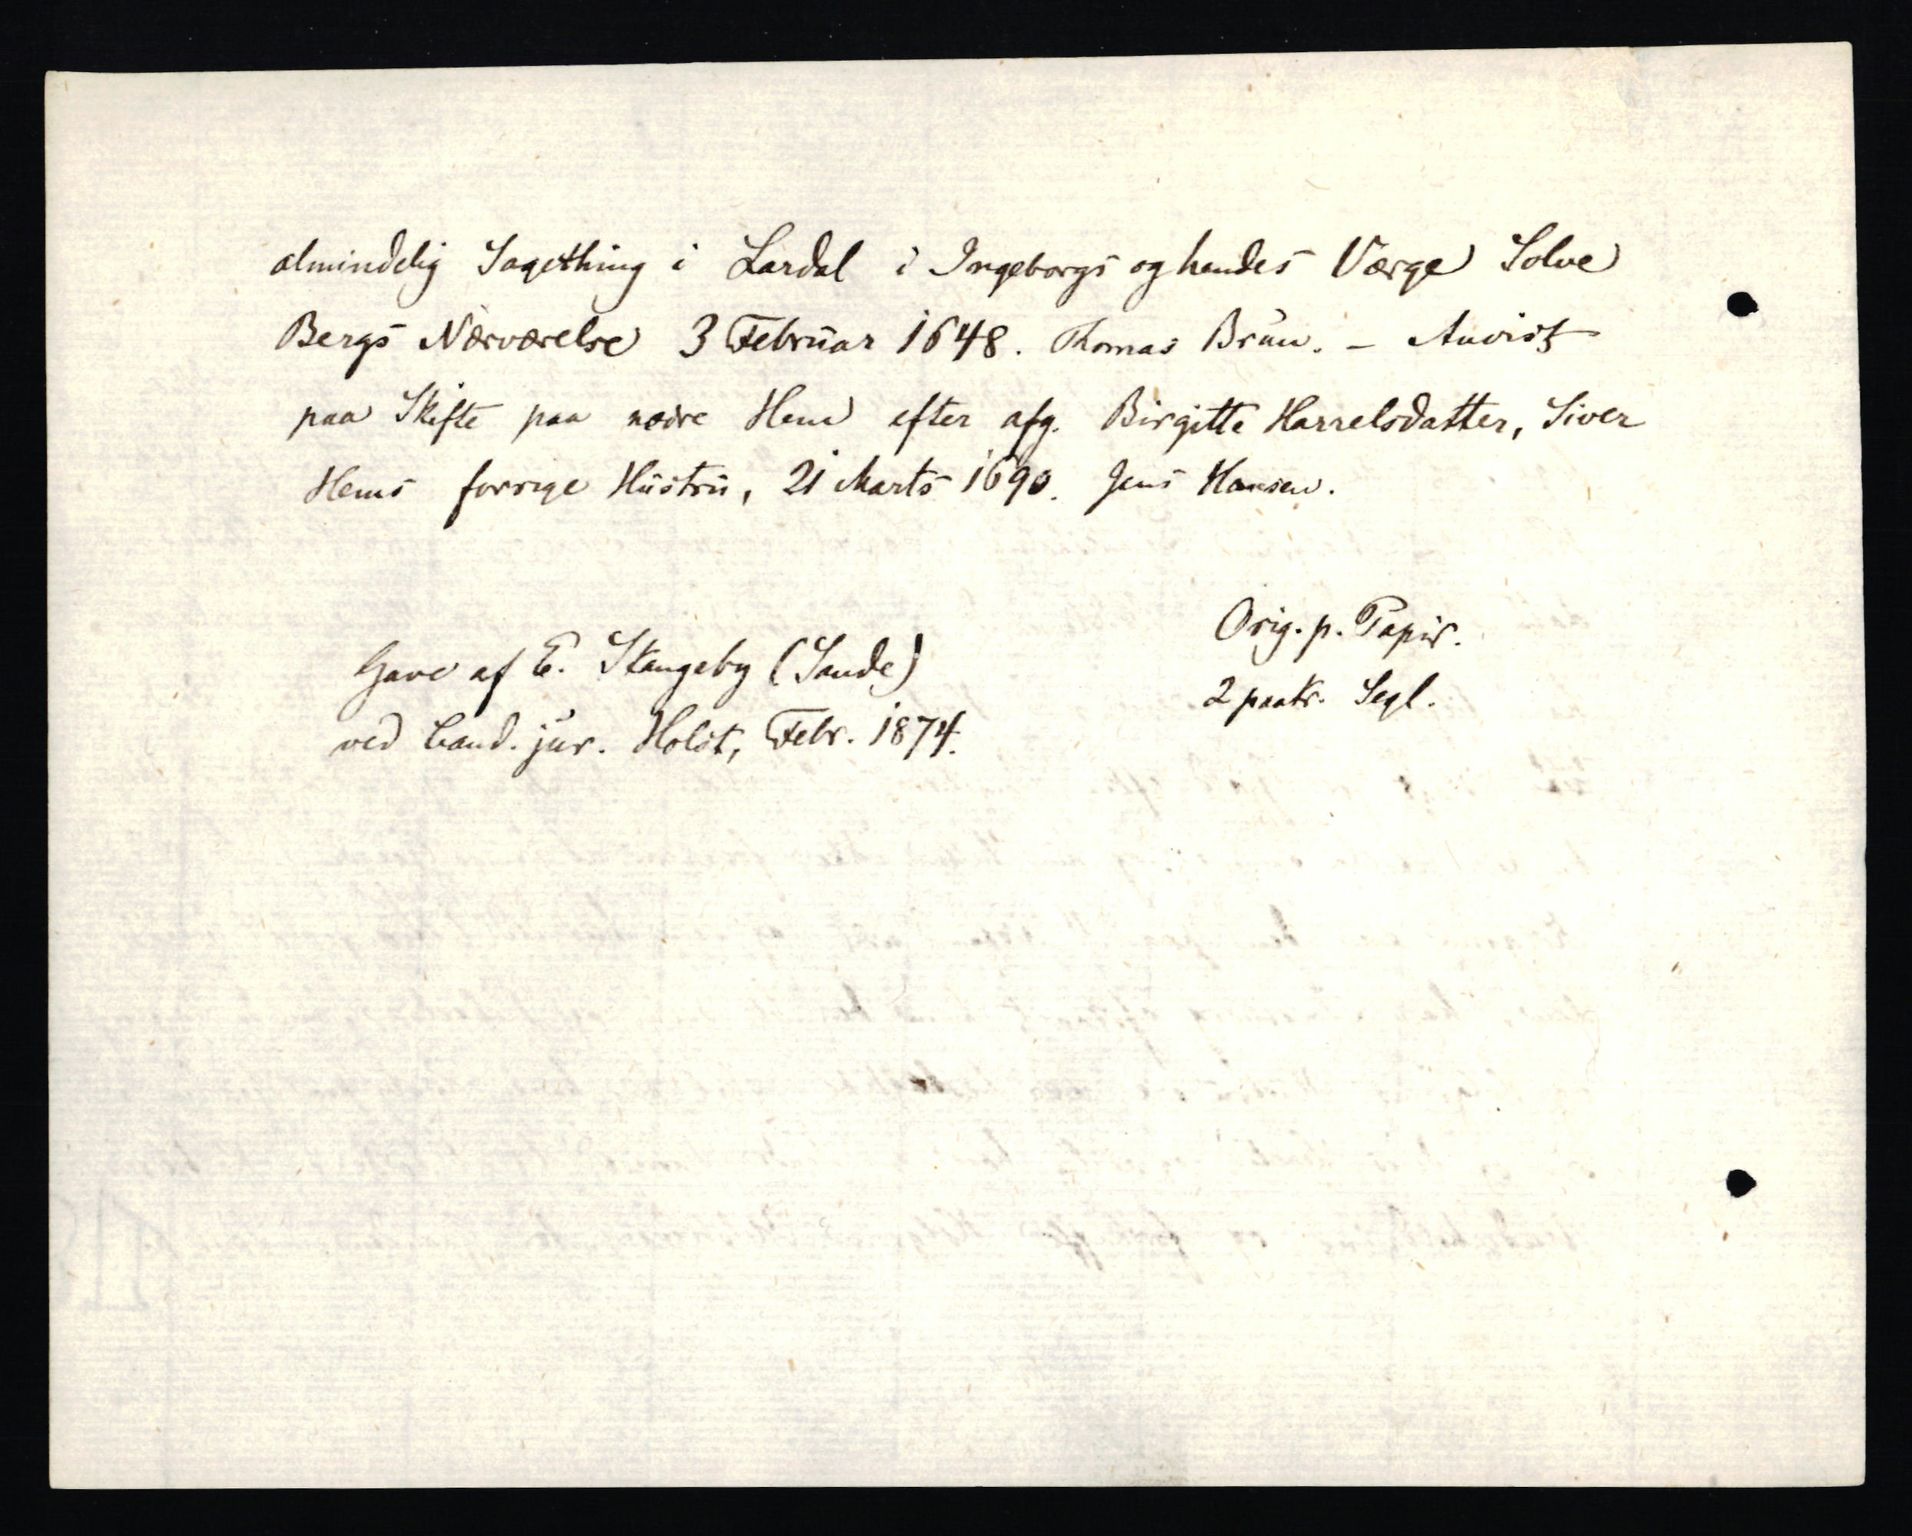 almindelig Sagething i Lardal i Ingeborgs og hendes Værge Solve
Bergs Nærværelse 3 Februar 1648. Thomas Brun. – Anvist
paa Skifte paa nedre Hem efter afg. Birgitte Harrelsdatter, Siver
Hems forrige Hustru, 21 Marts 1690. Jens Hansen.
Orig. p. Papir.
2 paatr. Segl.
Gave af E. Skangeby (Sande)
ved Cand. jur. Holst, Febr. 1874.